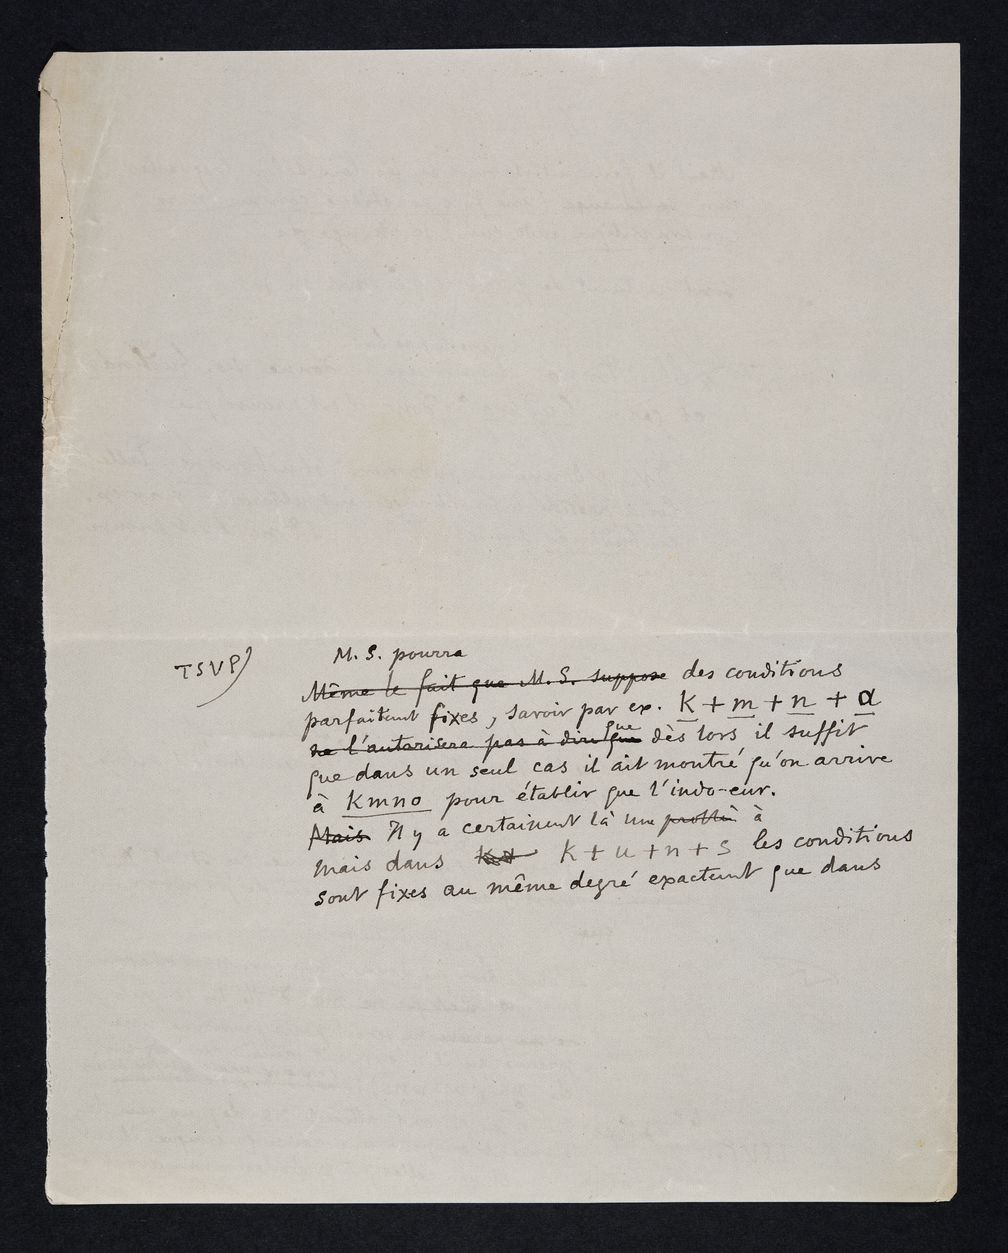 TSVP)
M. S. pourra
Même le fait que M. S. suppose des conditions
parfaitemt fixes, savoir par ex. k + m + n + a
ne l'autorisera pas à dire que que dès lors il suffit
que dans un seul cas il ait montré qu'on arrive
à kmno pour établir que l'indo-eur.
Mais Il y a certainemt là un à
mais dans k + u + n + s les conditions
sont fixes au même degré exactemt que dans